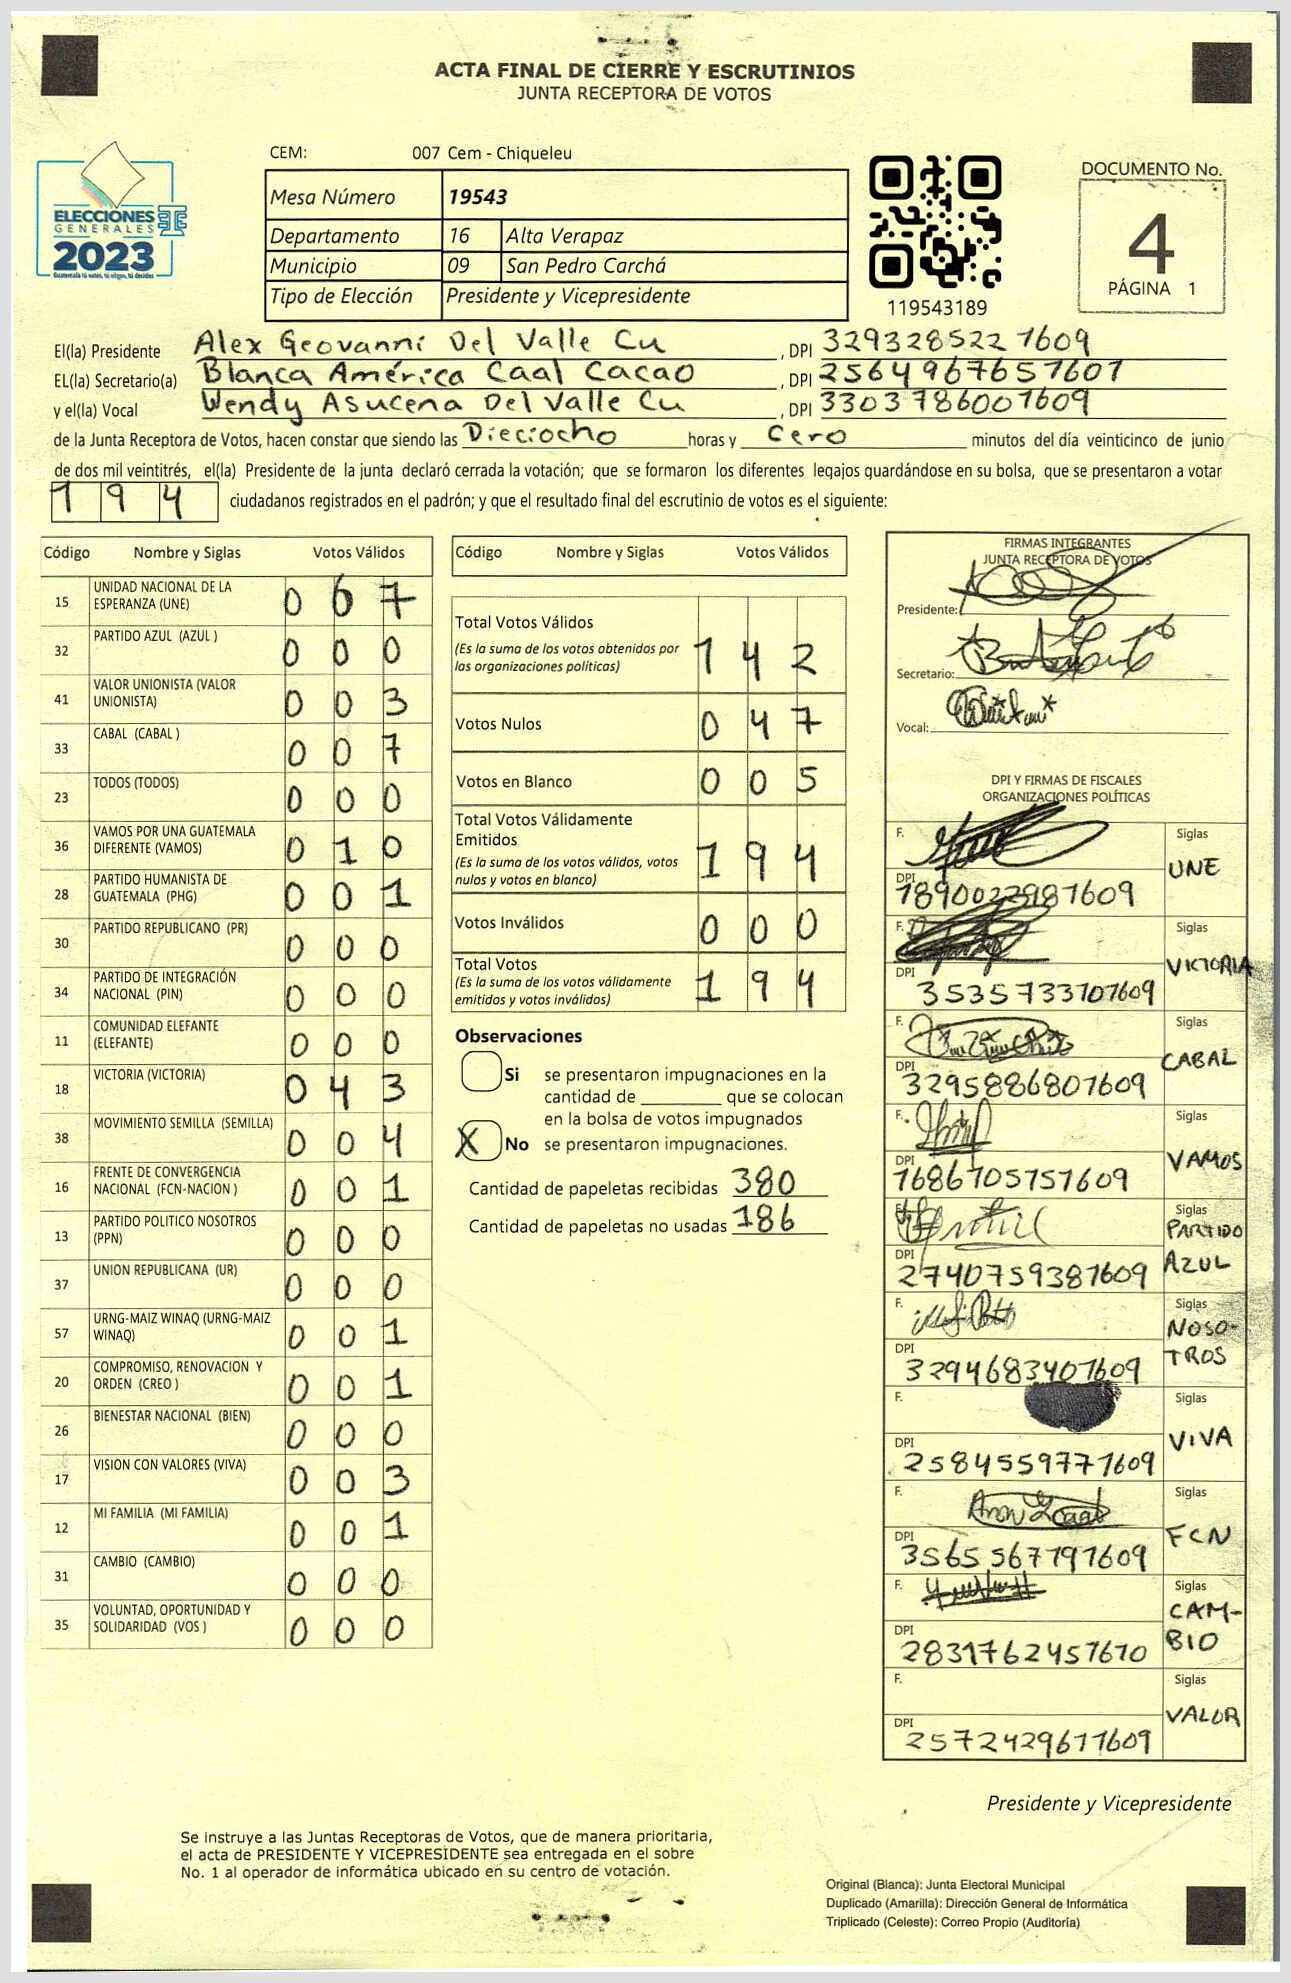 ACTA FINAL DE CIERRE Y ESCRUTINIOS
JUNTA RECEPTORA DE VOTOS
CEM: 007 Cem - Chiqueleu
ELECCIONES
GENERALES
2023
Guatemala tú votas, tú eliges, tú decides
Mesa Número 19543
Departamento 16 Alta Verapaz
Municipio 09 San Pedro Carchá
Tipo de Elección Presidente y Vicepresidente
119543189
DOCUMENTO No.
4
PÁGINA 1
El(la) Presidente Alex Geovanni Del Valle Cu , DPI 329328522 1609
EL(la) Secretario(a) Blanca América Caal Cacao , DPI 2564967651601
y el(la) Vocal Wendy Asucena Del Valle Cu , DPI 3303786001609
de la Junta Receptora de Votos, hacen constar que siendo las Dieciocho horas y cero minutos del día veinticinco de junio
de dos mil veintitrés, el(la) Presidente de la junta declaró cerrada la votación; que se formaron los diferentes legajos guardándose en su bolsa, que se presentaron a votar
194 ciudadanos registrados en el padrón; y que el resultado final del escrutinio de votos es el siguiente:
Código Nombre y Siglas Votos Válidos
15 UNIDAD NACIONAL DE LA ESPERANZA (UNE) 0 6 7
32 PARTIDO AZUL (AZUL ) 0 0 0
41 VALOR UNIONISTA (VALOR UNIONISTA) 0 0 3
33 CABAL (CABAL ) 0 0 7
23 TODOS (TODOS) 0 0 0
36 VAMOS POR UNA GUATEMALA DIFERENTE (VAMOS) 0 1 0
28 PARTIDO HUMANISTA DE GUATEMALA (PHG) 0 0 1
30 PARTIDO REPUBLICANO (PR) 0 0 0
34 PARTIDO DE INTEGRACIÓN NACIONAL (PIN) 0 0 0
11 COMUNIDAD ELEFANTE (ELEFANTE) 0 0 0
18 VICTORIA (VICTORIA) 0 4 3
38 MOVIMIENTO SEMILLA (SEMILLA) 0 0 4
16 FRENTE DE CONVERGENCIA NACIONAL (FCN-NACION ) 0 0 1
13 PARTIDO POLITICO NOSOTROS (PPN) 0 0 0
37 UNION REPUBLICANA (UR) 0 0 0
57 URNG-MAIZ WINAQ (URNG-MAIZ WINAQ) 0 0 1
20 COMPROMISO, RENOVACION Y ORDEN (CREO ) 0 0 1
26 BIENESTAR NACIONAL (BIEN) 0 0 0
17 VISION CON VALORES (VIVA) 0 0 3
12 MI FAMILIA (MI FAMILIA) 0 0 1
31 CAMBIO (CAMBIO) 0 0 0
35 VOLUNTAD, OPORTUNIDAD Y SOLIDARIDAD (VOS ) 0 0 0
Código Nombre y Siglas Votos Válidos
Total Votos Válidos
(Es la suma de los votos obtenidos por
las organizaciones políticas) 1 4 2
Votos Nulos 0 4 7
Votos en Blanco 0 0 5
Total Votos Válidamente
Emitidos
(Es la suma de los votos válidos, votos
nulos y votos en blanco) 1 9 4
Votos Inválidos 0 0 0
Total Votos
(Es la suma de los votos válidamente
emitidos y votos inválidos) 1 9 4
Observaciones
Si se presentaron impugnaciones en la
cantidad de ________ que se colocan
en la bolsa de votos impugnados
X No se presentaron impugnaciones.
Cantidad de papeletas recibidas 380
Cantidad de papeletas no usadas 186
FIRMAS INTEGRANTES
JUNTA RECEPTORA DE VOTOS
Presidente:
Secretario:
Vocal:
DPI Y FIRMAS DE FISCALES
ORGANIZACIONES POLÍTICAS
F. Siglas
UNE
DPI 1890023981609
F. Siglas
VICTORIA
DPI 3535733101609
F. Siglas
CABAL
DPI 3295886801609
F. Siglas
VAMOS
DPI 1686705751609
F. Siglas
PARTIDO
AZUL
DPI 2740759381609
F. Siglas
NOSO-
TROS
DPI 3294683401609
F. Siglas
VIVA
DPI 2584559771609
F. Siglas
FCN
DPI 3565567191609
F. Siglas
CAM-
BIO
DPI 2831762451610
F. Siglas
VALOR
DPI 2572429611609
Presidente y Vicepresidente
Se instruye a las Juntas Receptoras de Votos, que de manera prioritaria,
el acta de PRESIDENTE Y VICEPRESIDENTE sea entregada en el sobre
No. 1 al operador de informática ubicado en su centro de votación.
Original (Blanca): Junta Electoral Municipal
Duplicado (Amarilla): Dirección General de Informática
Triplicado (Celeste): Correo Propio (Auditoría)